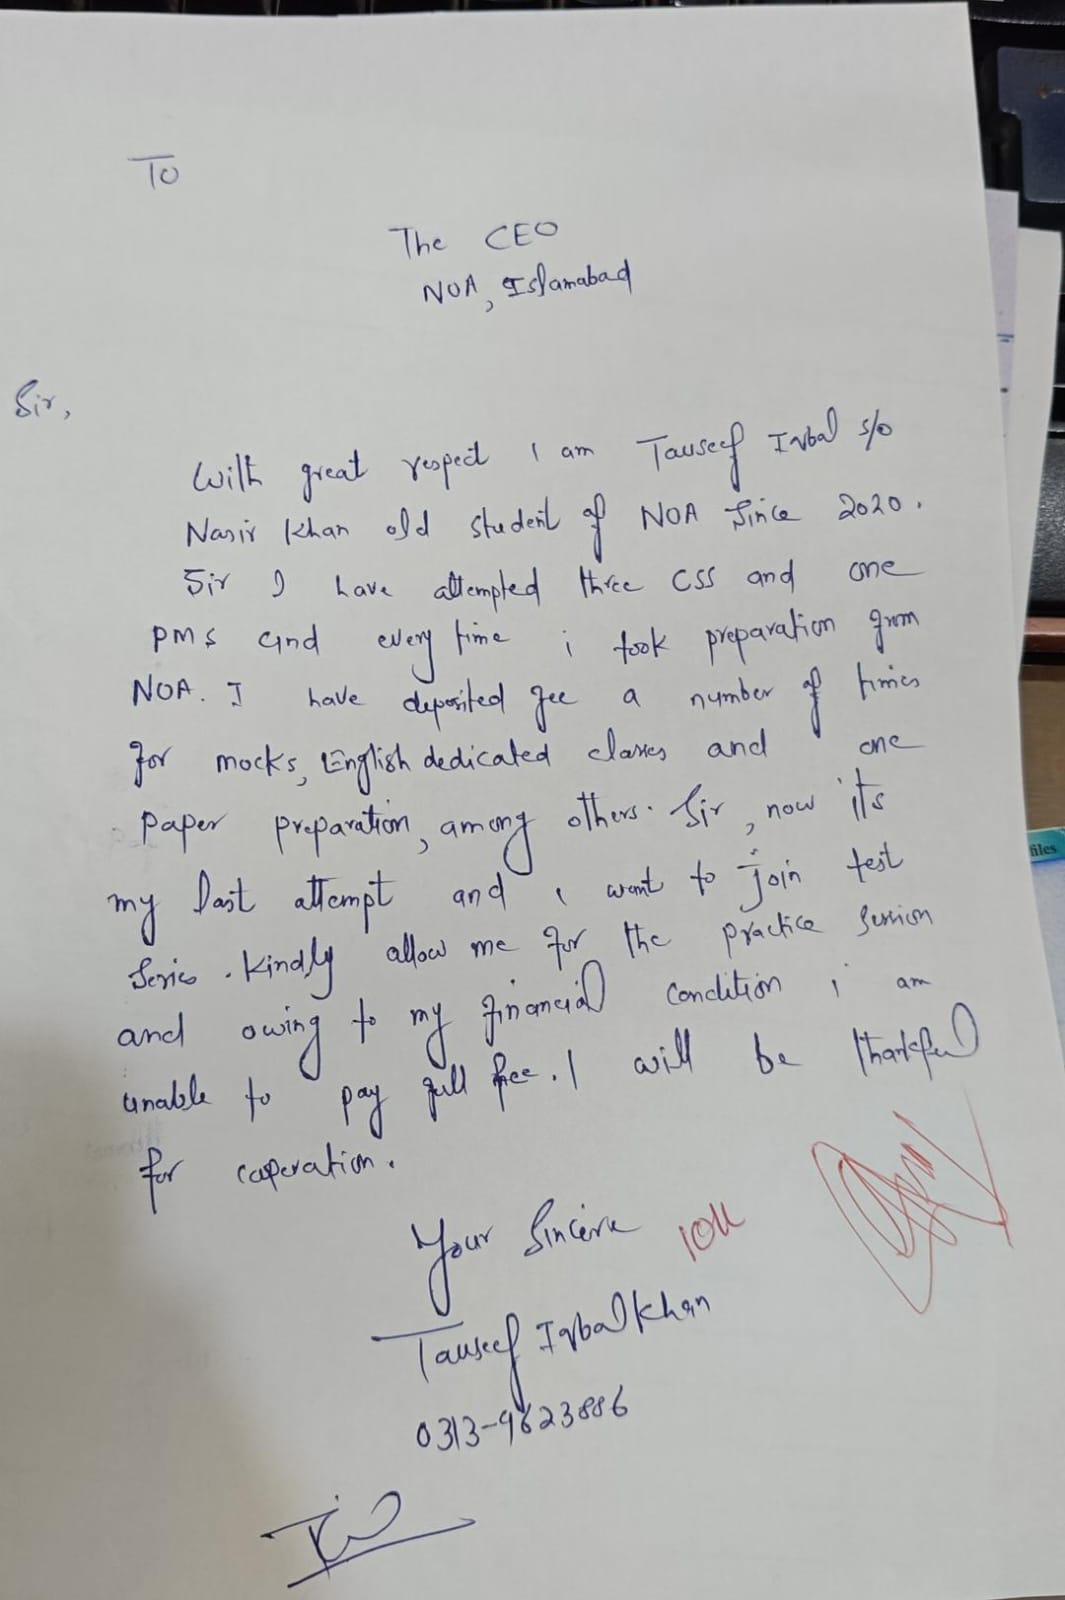 To
The CEO
NOA, Islamabad
Sir,
With great respect I am Tauseef Iqbal s/o
Nasir Khan old student of NOA Since 2020.
Sir I have attempted three CSS and one
PMS and every time i took preparation from
NOA. I have deposited fee a number of times
for mocks, English dedicated classes and one
paper preparation, among others. Sir, now it's
my last attempt and i want to join test
Series. Kindly allow me for the practice session
and owing to my financial condition i am
unable to pay full fee. I will be thankful
for coperation.
Your Sincere
Tauseef Iqbal Khan
0313-9623886
files